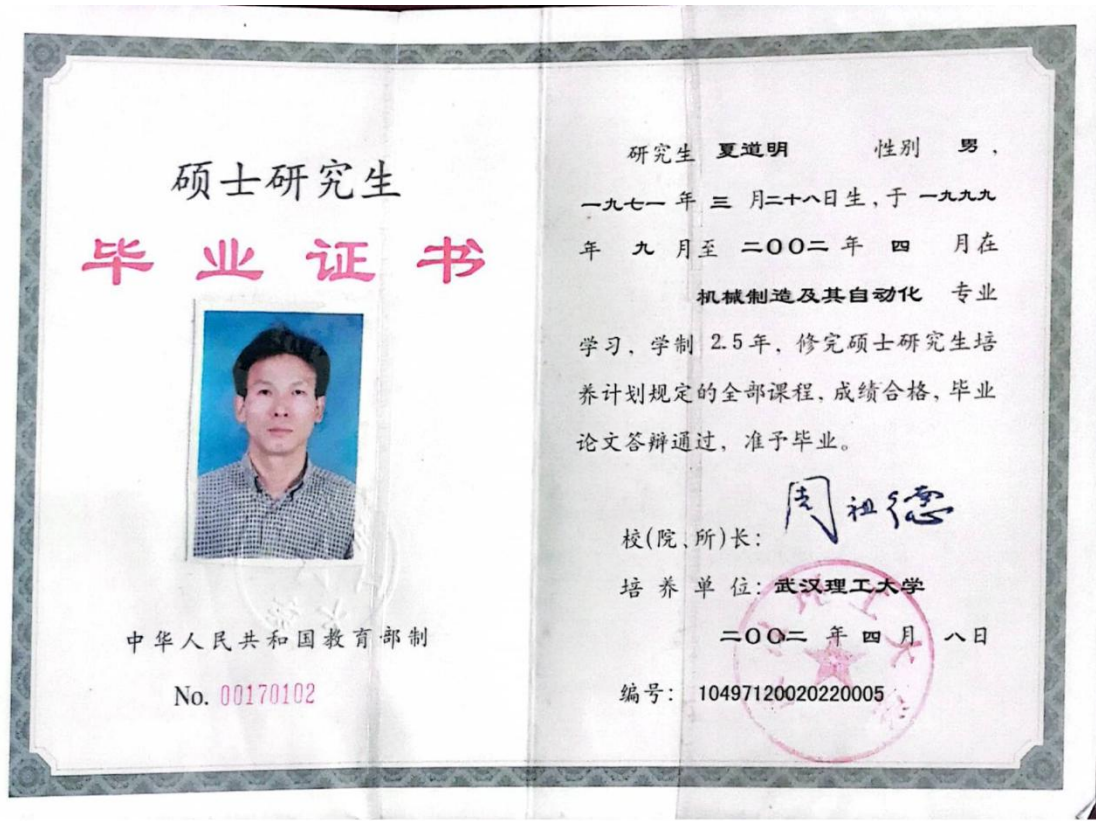 硕士研究生
毕业证书
中华人民共和国教育部制
No. 00170102
研究生 夏道明 性别 男，
一九七一 年 三 月二十八日生，于 一九九九
年 九 月至 二〇〇二 年 四 月在
机械制造及其自动化 专业
学习，学制 2.5年，修完硕士研究生培
养计划规定的全部课程，成绩合格，毕业
论文答辩通过，准予毕业。
校(院、所)长：周祖德
培养单位：武汉理工大学
二〇〇二 年 四 月 八日
编号：10497120020220005